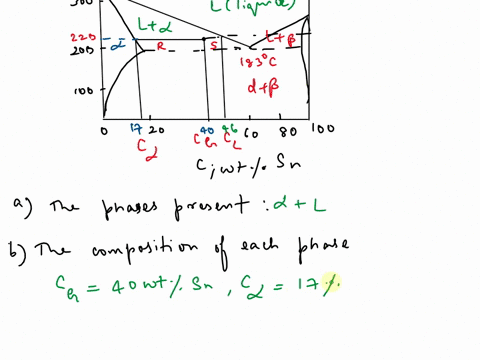 300
L (liquid)
L+α
220
α
200
R
S
L+β
183°C
α+β
100
0
17
20
40
46
60
80
100
Cα
C₀
CL
C, wt.% Sn
a) The phases present : α + L
b) The composition of each phase
C₀ = 40 wt.% Sn, Cα = 17 %